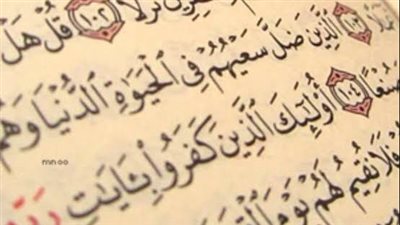 نُزُلًا ١٠٢ قُلْ هَلْ
ٱلَّذِينَ ضَلَّ سَعْيُهُمْ فِي ٱلْحَيَوٰةِ ٱلدُّنْيَا وَهُمْ
صُنْعًا ١٠٤ أُو۟لَٰٓئِكَ ٱلَّذِينَ كَفَرُوا۟ بِـَٔايَٰتِ رَبِّهِ
فَلَا نُقِيمُ لَهُمْ يَوْمَ
mnoo